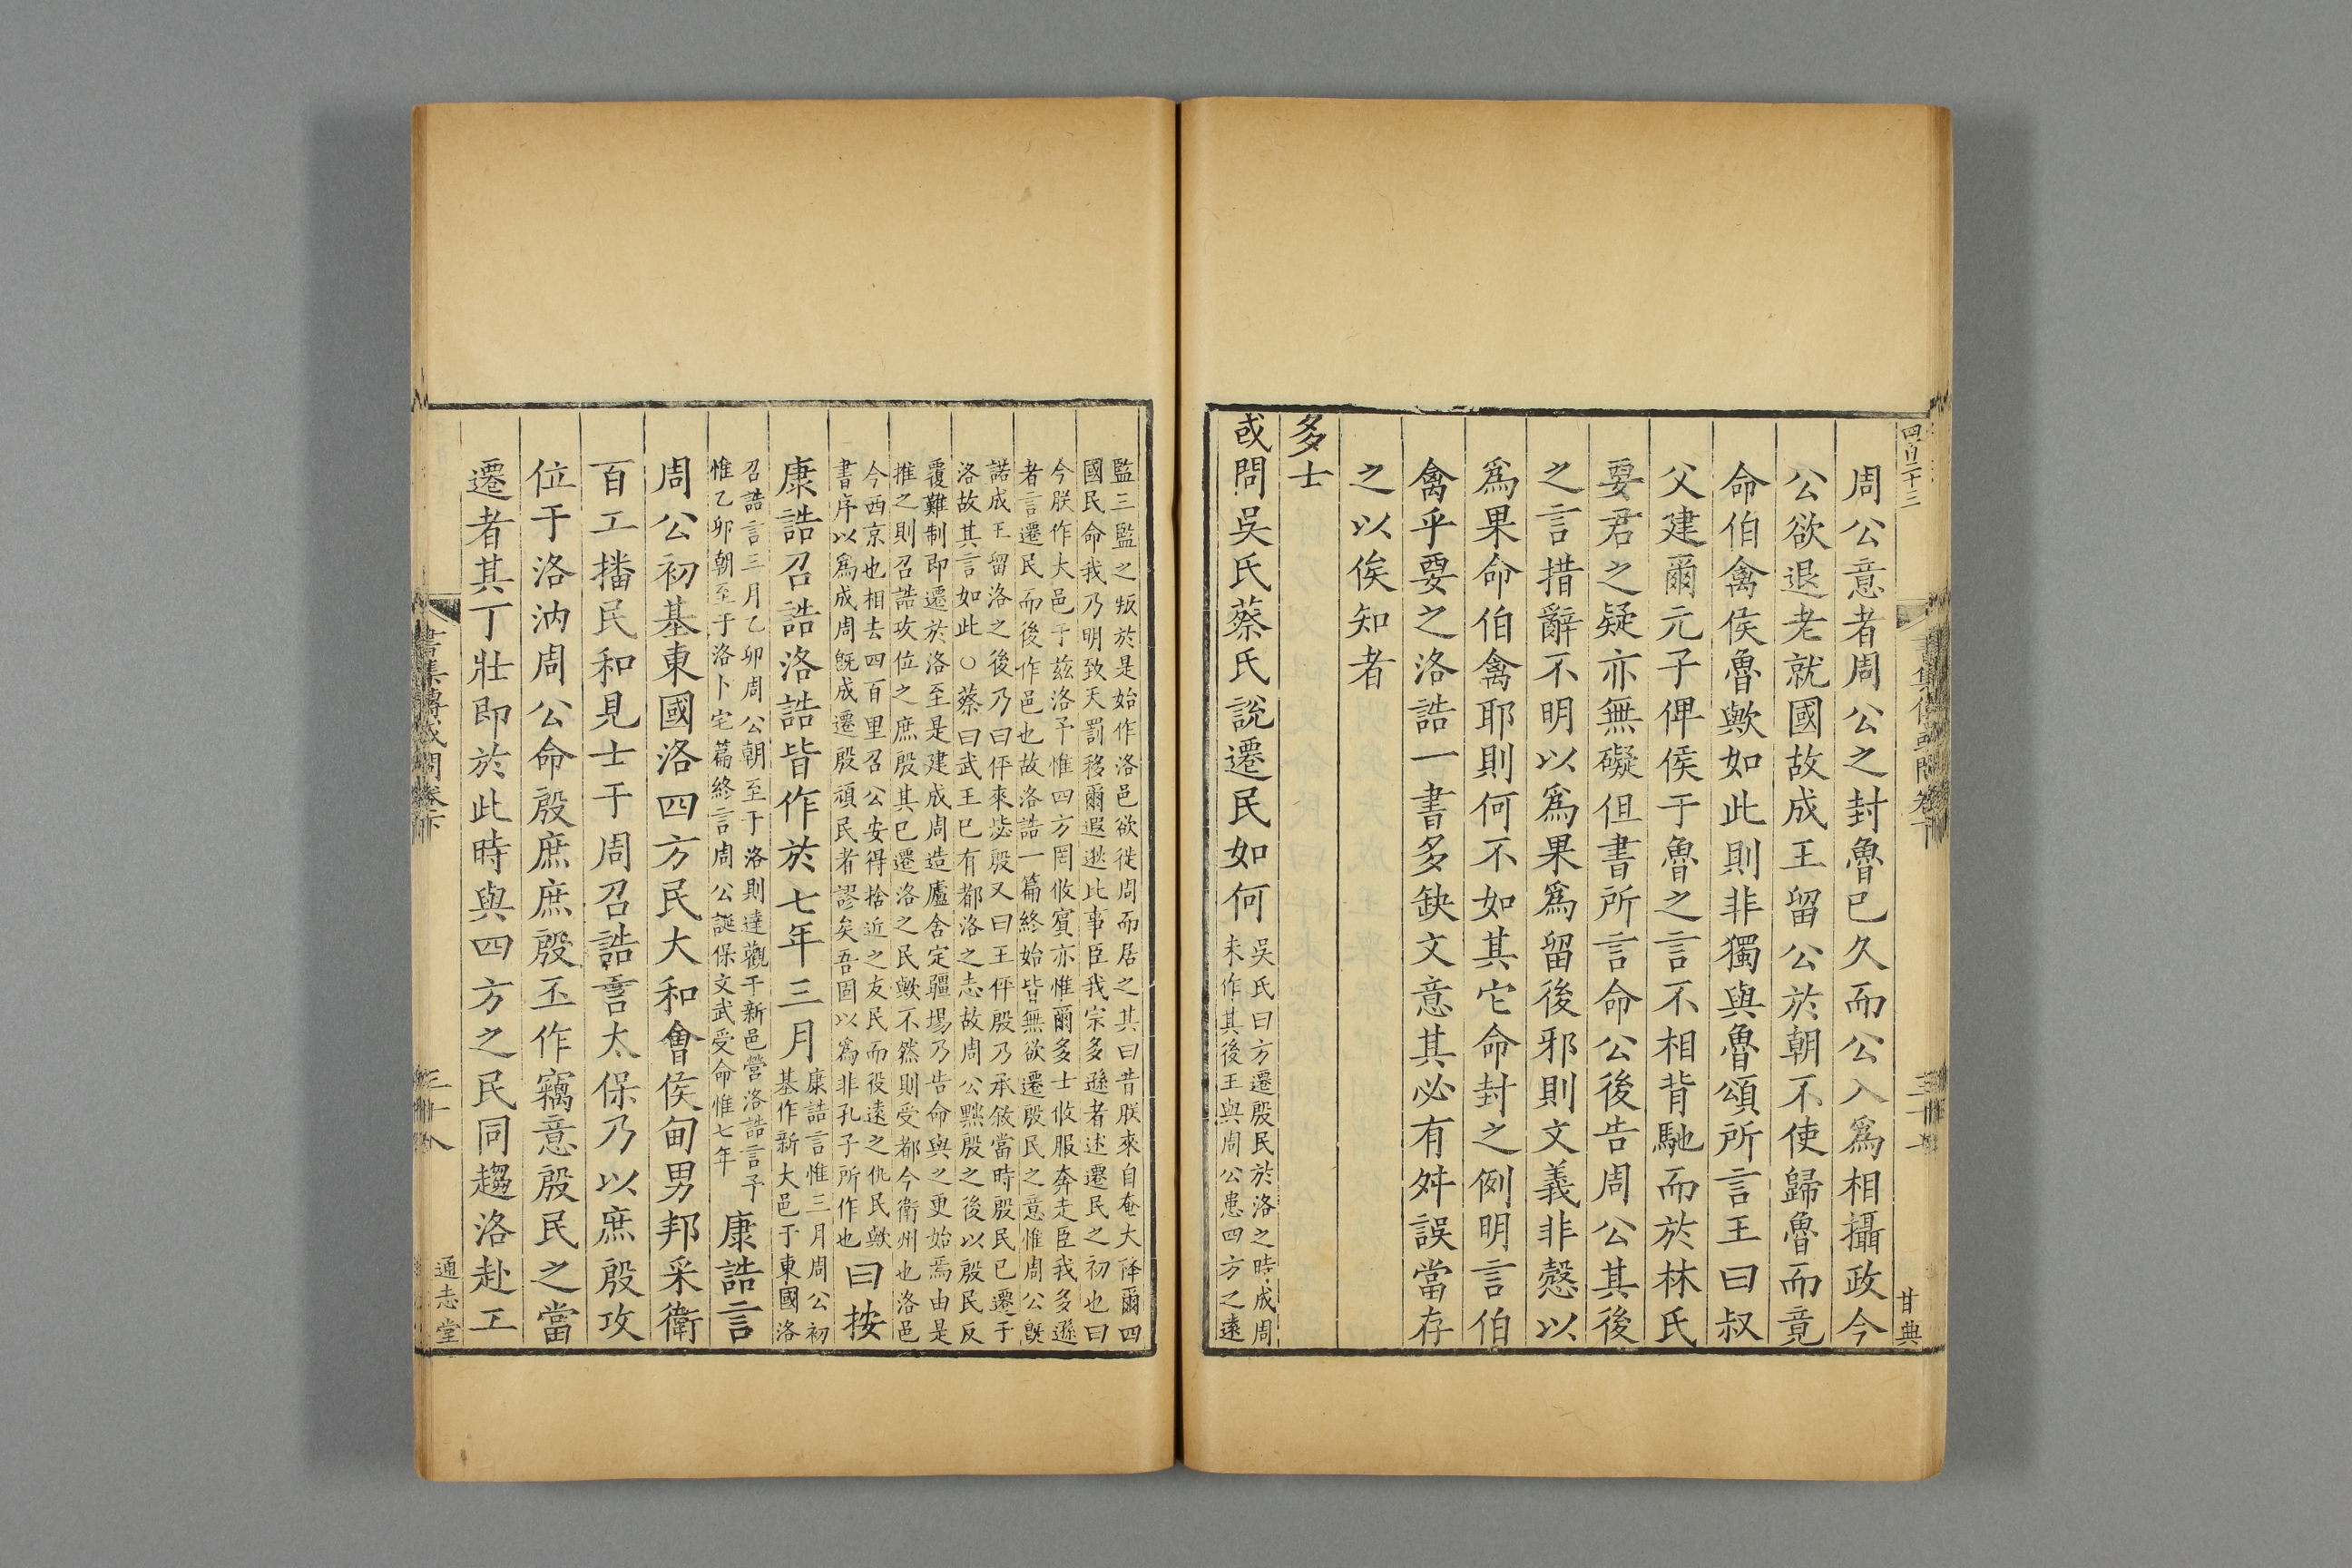 四百二十三
甘典
周公意者周公之封魯已久而公入爲相攝政今
公欲退老就國故成王留公於朝不使歸魯而竟
命伯禽侯魯歟如此則非獨與魯頌所言王曰叔
父建爾元子俾侯于魯之言不相背馳而於林氏
要君之疑亦無礙但書所言命公後告周公其後
之言措辭不明以爲果爲留後邪則文義非愨以
爲果命伯禽耶則何不如其它命封之例明言伯
禽乎要之洛誥一書多缺文意其必有舛誤當存
之以俟知者
多士
或問吳氏蔡氏說遷民如何
吳氏曰方遷殷民於洛之時成周
未作其後王與周公患四方之遠
監三監之叛於是始作洛邑欲徙周而居之其曰昔朕來自奄大降爾四
國民命我乃明致天罰移爾遐逖比事臣我宗多遜者述遷民之初也曰
今朕作大邑于玆洛予惟四方罔攸賓亦惟爾多士攸服奔走臣我多遜
者言遷民而後作邑也故洛誥一篇終始皆無欲遷殷民之意惟周公旣
諾成王留洛之後乃曰伻來毖殷又曰王伻殷乃承敘當時殷民已遷于
洛故其言如此○蔡曰武王已有都洛之志故周公黜殷之後以殷民反
覆難制即遷於洛至是建成周造廬舍定疆埸乃告命與之更始焉由是
推之則召誥攻位之庶殷其已遷洛之民歟不然則受都今衛州也洛邑
今西京也相去四百里召公安得捨近之友民而役遠之仇民歟
書序以爲成周旣成遷殷頑民者謬矣吾固以爲非孔子所作也
曰按
康誥召誥洛誥皆作於七年三月
康誥言惟三月周公初
基作新大邑于東國洛
召誥言三月乙卯周公朝至于洛則達觀于新邑營洛誥言予
惟乙卯朝至于洛卜宅篇終言周公誕保文武受命惟七年
康誥言
周公初基東國洛四方民大和會侯甸男邦采衛
百工播民和見士于周召誥言太保乃以庶殷攻
位于洛汭周公命殷庶庶殷丕作竊意殷民之當
遷者其丁壯即於此時與四方之民同趨洛赴工
書集傳或問卷下
三十八
通志堂